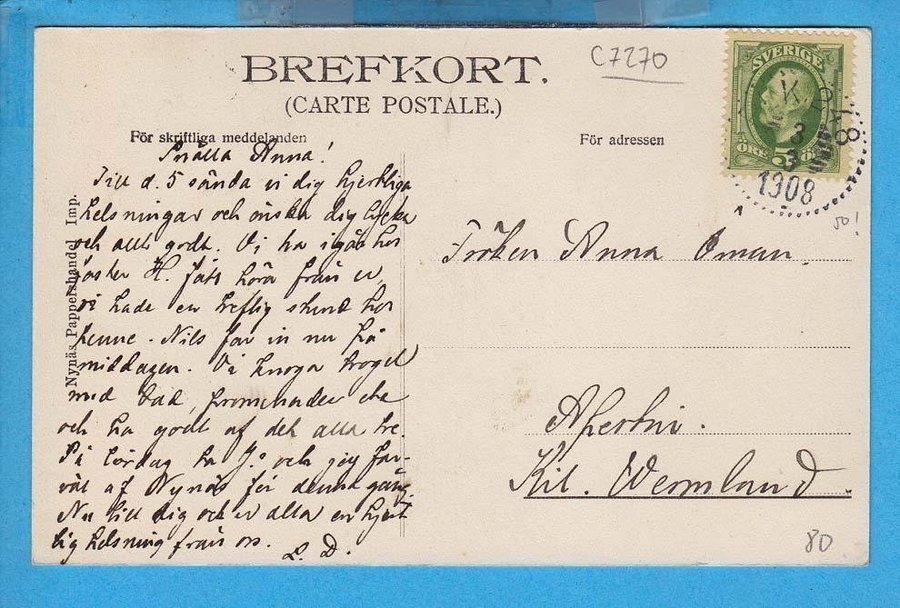 BREFKORT.
(CARTE POSTALE.)
C7270
För skriftliga meddelanden
För adressen
SVERIGE
5
ÖRE
K 918
3
3
1908
50!
Snälla Anna!
Till d. 5 sända vi dig hjertliga
helsningar och önska dig lycka
och allt godt. Vi ha igår hos
faster H. fått höra från er,
vi hade en treflig stund hos
henne. Nils far in nu på
middagen. Vi knoga troget
med bad, promenader etc
och ha godt af det alla tre.
På lördag ta och jag far-
väl af Nynäs för denna gång
Nu till dig och er alla en hjert
lig helsning från oss.
L. D.
Nynäs Pappershandel Imp.
Fröken Anna Öman
Kil. Wermland.
80